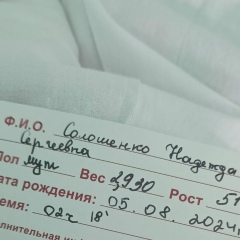 Ф.И.О. Солошенко Надежда
Сергеевна
Пол муж Вес 2,990 Рост 51
ата рождения: 05.08.2024г
емя: 02ч 18'
полнительная